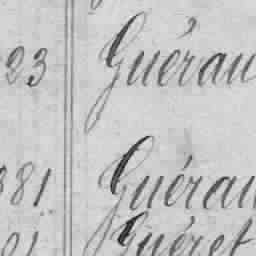 23 Guérau
381 Guérau
01 Guéret